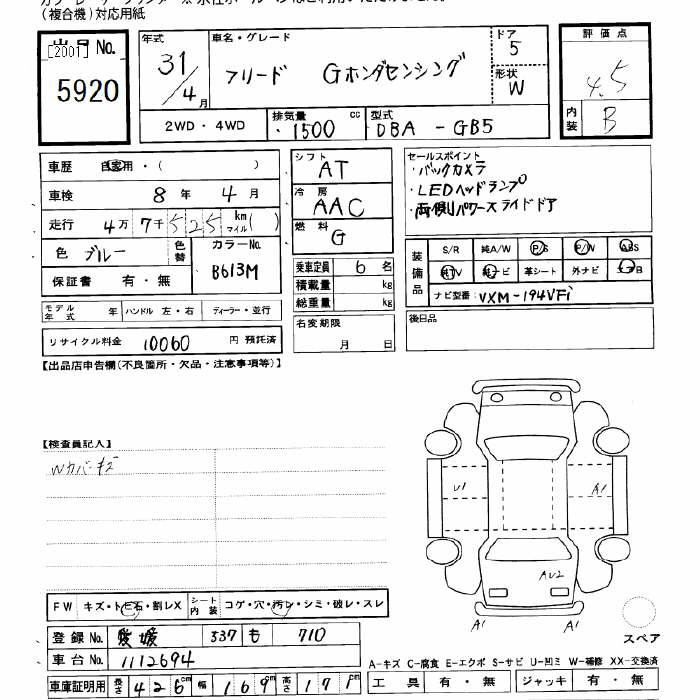 (複合機)対応用紙
出品 No.
[2001]
5920
年式
31/4月
車名・グレード
フリード Gホンダセンシング
ドア
5
形状
W
評価点
4.5
内装
B
2WD・4WD
排気量
1500 cc
型式
DBA - GB5
車歴 自家用・( )
車検 8年 4月
走行 4万 7千 525 km マイル( )
色 ブルー
色替
カラーNo.
B613M
保証書 有・無
シフト
AT
冷房
AAC
燃料
G
乗車定員 6名
積載量 kg
総重量 kg
名変期限
月 日
セールスポイント
・バックカメラ
・LEDヘッドランプ
・両側パワースライドドア
装備品
S/R 純A/W P/S P/W ABS
純TV 純ナビ 革シート 外ナビ エアB
ナビ型番: VXM-194VFi
後日品
モデル年式 年 ハンドル 左・右 ディーラー・並行
リサイクル料金 10060 円 預託済
【出品店申告欄(不良箇所・欠品・注意事項等)】
【検査員記入】
Wカバーキズ
U1
A1
AU2
A1
A1
スペア
FW キズ・トビ石・割レX
シート内装 コゲ・穴・汚レ・シミ・破レ・スレ
登録No. 愛媛 337 も 710
車台No. 1112694
車庫証明用 長さ 426cm 幅 169cm 高さ 171cm
A-キズ C-腐食 E-エクボ S-サビ U-凹ミ W-補修 XX-交換済
工具 有・無 ジャッキ 有・無